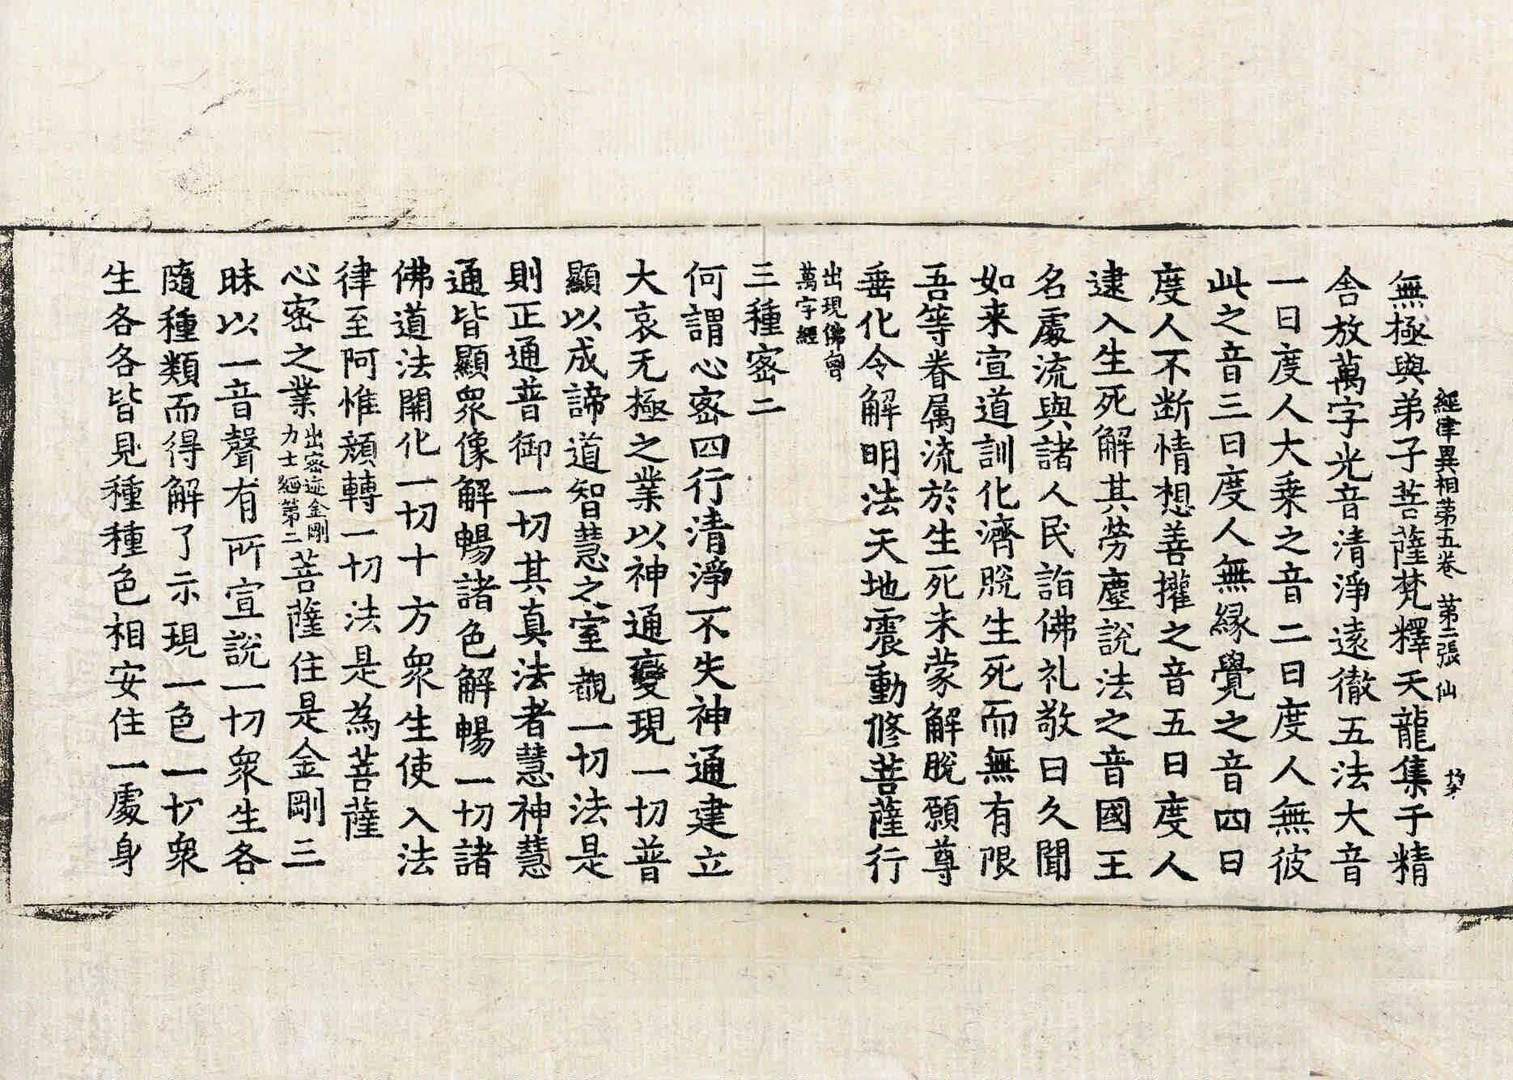 經律異相第五卷 第二張 仙
無極與弟子菩薩梵釋天龍集于精
舍放萬字光音清淨遠徹五法大音
一曰度人大乘之音二曰度人無彼
此之音三曰度人無緣覺之音四曰
度人不断情想善攉之音五曰度人
逮入生死解其勞塵說法之音國王
名處流與諸人民詣佛礼敬曰久聞
如来宣道訓化濟脫生死而無有限
吾等眷属流於生死未蒙解脫願尊
垂化令解明法天地震動修菩薩行
出現佛曾
萬字經
三種密二
何謂心密四行清淨不失神通建立
大哀无極之業以神通變現一切普
顯以成諦道智慧之室觀一切法是
則正通普御一切其真法者慧神慧
通皆顯衆像解暢諸色解暢一切諸
佛道法開化一切十方衆生使入法
律至阿惟顏轉一切法是為菩薩
心密之業出密迹金剛力士經第二菩薩住是金剛三
昧以一音聲有所宣說一切衆生各
隨種類而得解了示現一色一切衆
生各各皆見種種色相安住一處身